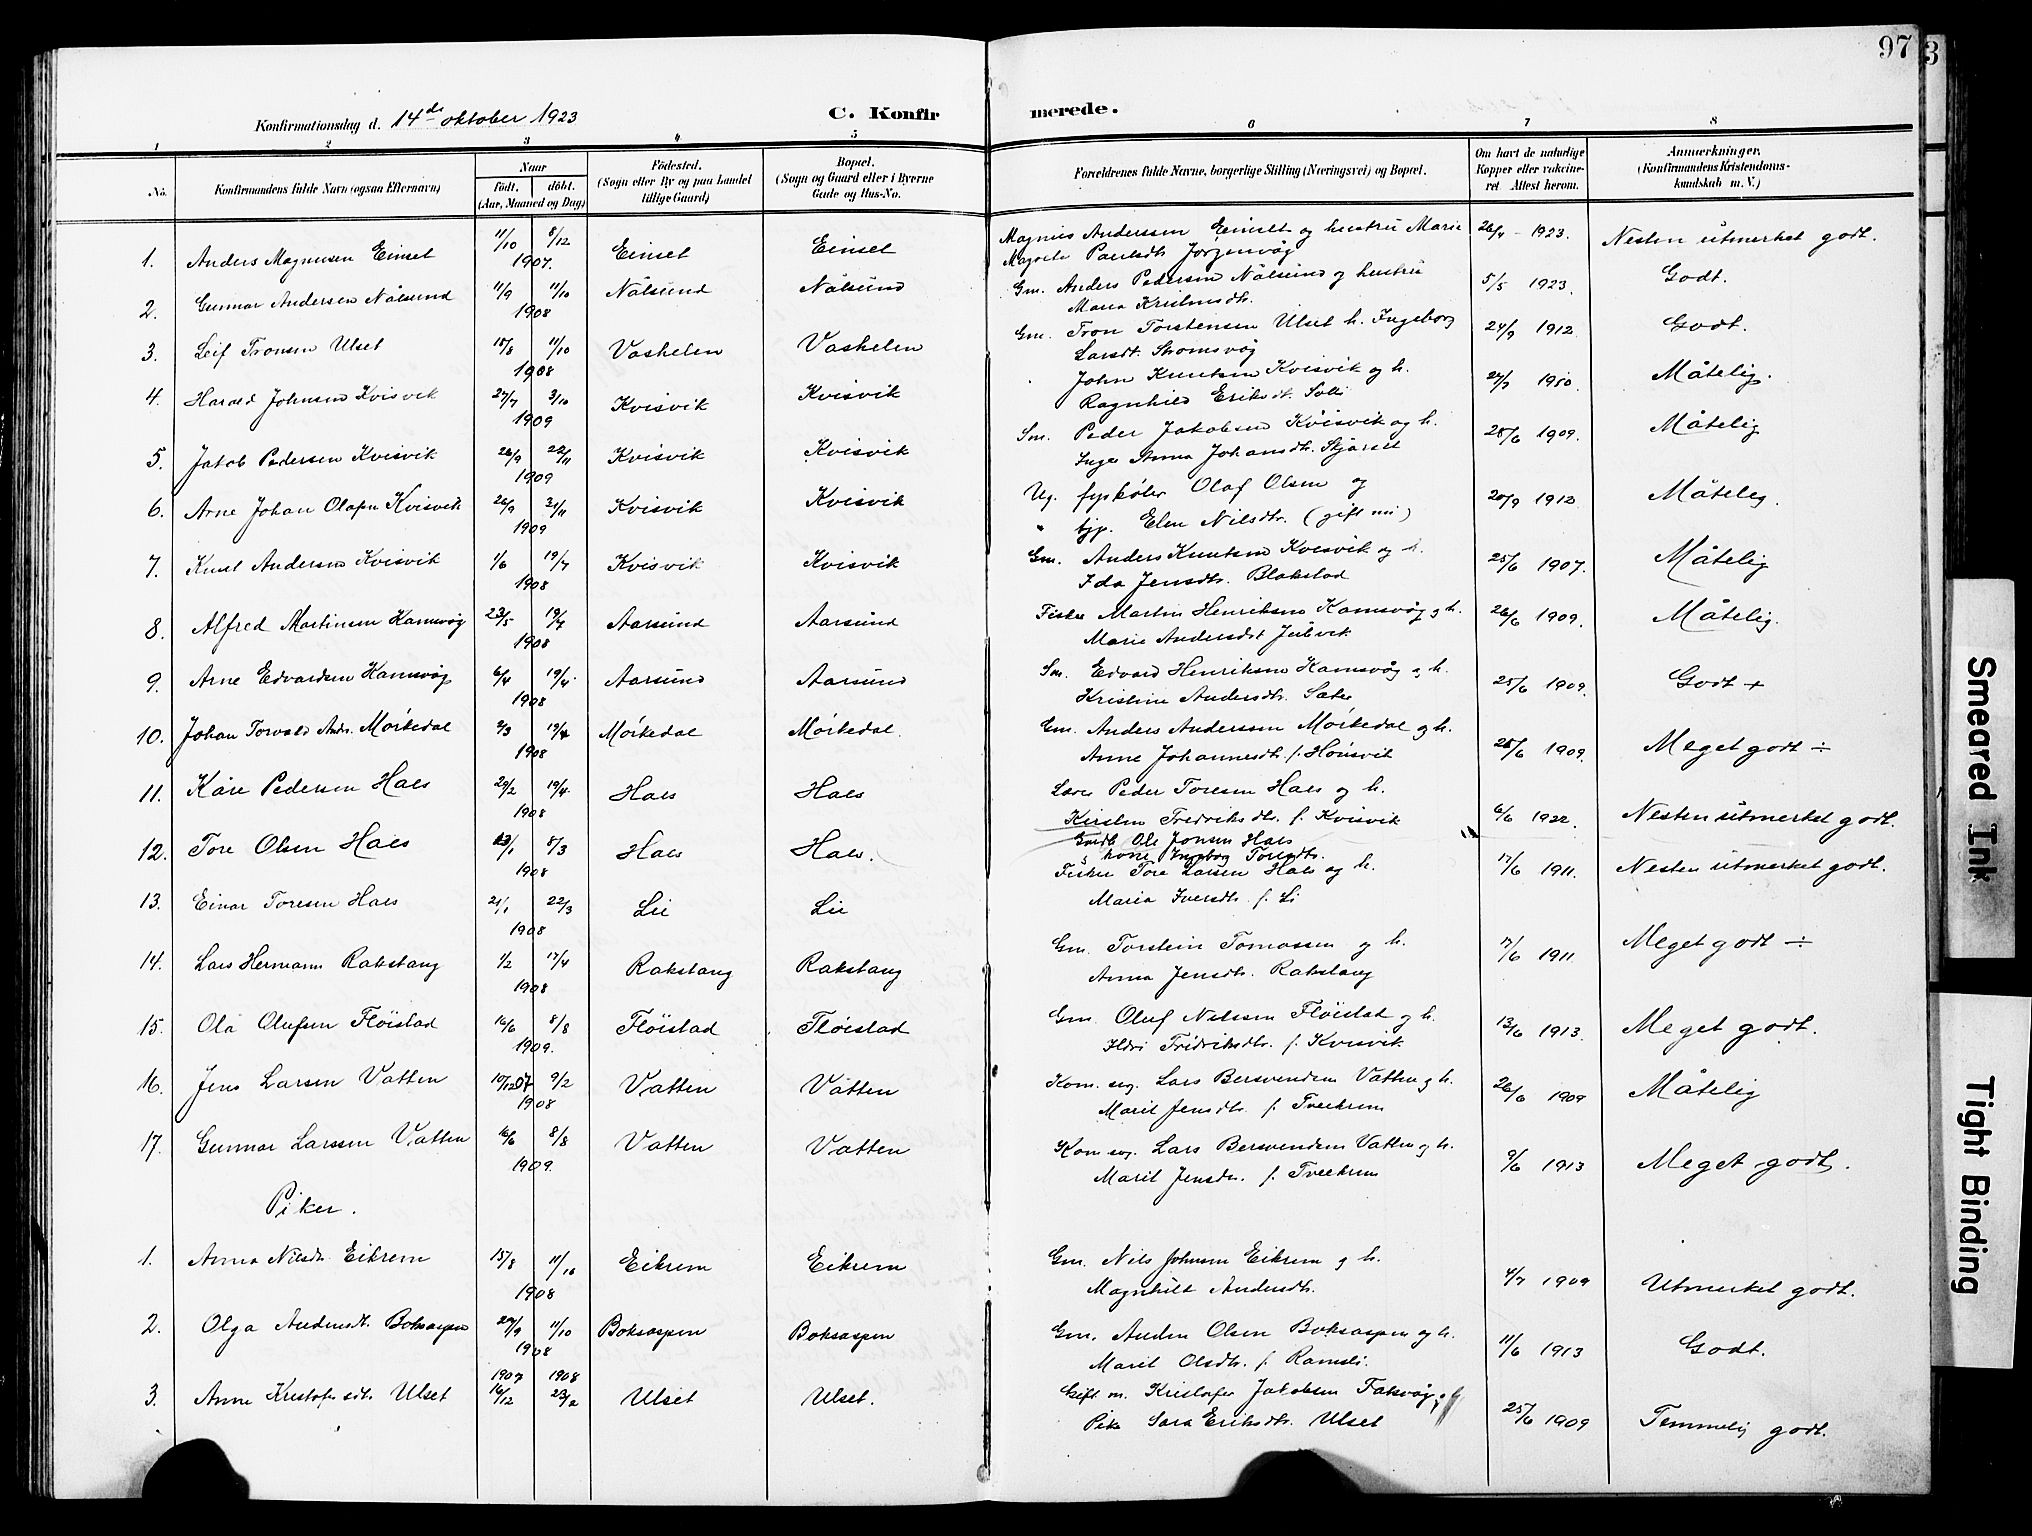 97
3
Konfirmationsdag d. 14de oktober 1923
C. Konfirmerede.
1 2 3 4 5 6 7 8
No.
Konfirmandens fulde Navn (ogsaa Efternavn)
Naar
födt. döbt.
(Aar, Maaned og Dag)
Födested.
(Sogn eller By og paa Landet
tillige Gaard)
Bopæl.
(Sogn og Gaard eller i Byerne
Gade og Hus-No.
Forældrenes fulde Navne, borgerlige Stilling (Næringsvei) og Bopæl.
Om havt de naturlige
Kopper eller vakcine-
ret Attest herom.
Anmærkninger.
(Konfirmandens Kristendoms-
kundskab m. V.)
1. Anders Magnusen Einset 11/10 8/12 1907. Einset Einset Magnus Anderssen Einset og hustru Marie
Magrete Paulsdtr Jørgenvåg 26/4 - 1923. Nesten utmerket godt.
2. Gunnar Andersen Nålsund 11/9 11/10 1908 Nålsund Nålsund Gm. Anders Pedersen Nålsund og hustru
Maria Kristensdtr. 5/5 1923. Godt.
3. Leif Tronsen Ulset 18/8 11/10 1908 Vaskelen Vaskelen Gm. Tron Torstensen Ulset h. Ingeborg
Larsdt. Strømsvåg 24/9 1912. Godt.
4. Harald Johnsen Kvisvik 27/7 3/10 1909 Kvisvik Kvisvik John Knutsen Kvisvik og h.
Ragnhild Eriksdt. Solli 27/7 1910 Måtelig.
5. Jakob Pedersen Kvisvik 26/9 22/11 1909 Kvisvik Kvisvik Sm. Peder Jakobsen Kvisvik og h.
Inger Anna Johansdtr. Stjørset 28/6 1909. Måtelig
6. Arne Johan Olafsn Kvisvik 26/9 21/11 1909 Kvisvik Kvisvik Ug. fyrbøter Olaf Olsen og
" tjp. Elen Nilsdtr. (gift nu) 20/9 1912 Måtelig.
7. Knut Andersen Kvisvik 1/6 19/7 1908 Kvisvik Kvisvik Gm. Anders Knutsen Kvisvik og h.
Ida Jensdtr. Blakstad 25/6 1907. Måtelig
8. Alfred Martinsen Kamsvåg 23/5 19/7 1908 Aarsund Aarsund Fisker Martin Henriksen Kamsvåg og h.
Marie Andersdt Julvik 26/6 1909. Måtelig.
9. Arne Edvardsen Kamsvåg 6/4 19/4. 1908 Aarsund Aarsund Sm. Edvard Henriksen Kamsvåg og h.
Kristine Andersdtr. Sæter 25/6 1909. Godt +
10. Johan Torvald Andr. Mørkedal 2/3 19/4 1908 Mørkedal Mørkedal. Gm. Anders Anderssen Mørkedal og h.
Anne Johannesdtr. f. Hønsvik 28/6 1909. Meget godt ÷
11. Kåre Pedersen Haes 29/2 19/4. 1908 Haes Haes Lærer Peder Toresen Haes og h.
Kirsten Fredriksdtr. f. Kvisvik 6/6 1922. Nesten utmerket godt.
12. Tore Olsen Haes 23/1 8/3 1908 Haes Haes. Gmdbr. Ole Jonsen Haes
kone Ingebog Toresdtr. 17/6 1911. Nesten utmerket godt.
13. Einar Toresen Haes 21/1 22/3 1908 Lie Lie Fisker Tore Larsen Haes og h.
Maria Iversdtr. f. Li
14. Lars Hermann Rakstang 1/2 17/4 1908 Rakstang Rakstang Gm. Torstein Tomassen og h.
Anna Jensdtr. Rakstang 17/6 1911 Meget godt ÷
15. Ola Olufsen Fløistad 16/6 8/8 1909. Fløistad Fløistad Gm. Oluf Nilssen Fløistat og h.
Ildri Fridriksdtr. f. Kvisvik 13/6 1913. Meget godt.
16. Jens Larsen Vatten 10/12 07 9/2 1908 Vatten Vatten Kom. seg. Lars Bersvendsen Vatten og h.
Marit Jensdtr. f. Tveekrem 26/6 1909 Måtelig
17. Gunnar Larssen Vatten 16/6 8/8 1909. Vatten Vatten Kom seg. Lars Bersvendsen Vatten og h.
Marit Jensdtr. f. Tveekrem 9/6 1913 Meget godt.
Piker.
1. Anna Nilsdtr Eikrem 15/8 11/10 1908 Eikrem Eikrem Gm. Nils Johnsen Eikrem og h.
Magnhilt Andersdtr. 4/7 1909 Utmerket godt.
2. Olga Andersdt. Boksaspen 24/9 11/10 1908 Boksaspen Boksaspen Gm. Anders Olsen Boksaspen og h.
Marit Olsdtr. f. Ramsli. 11/6 1913 Godt.
3. Anne Kristofersdtr Ulset 1907 16/12 1908 23/2 Ulset Ulset. Gift m. Kristofer Jakobsen Faksvåg og
Pike Sara Eriksdtr. Ulset 25/6 1909 Temmelig godt.
Smeared Ink
Tight Binding